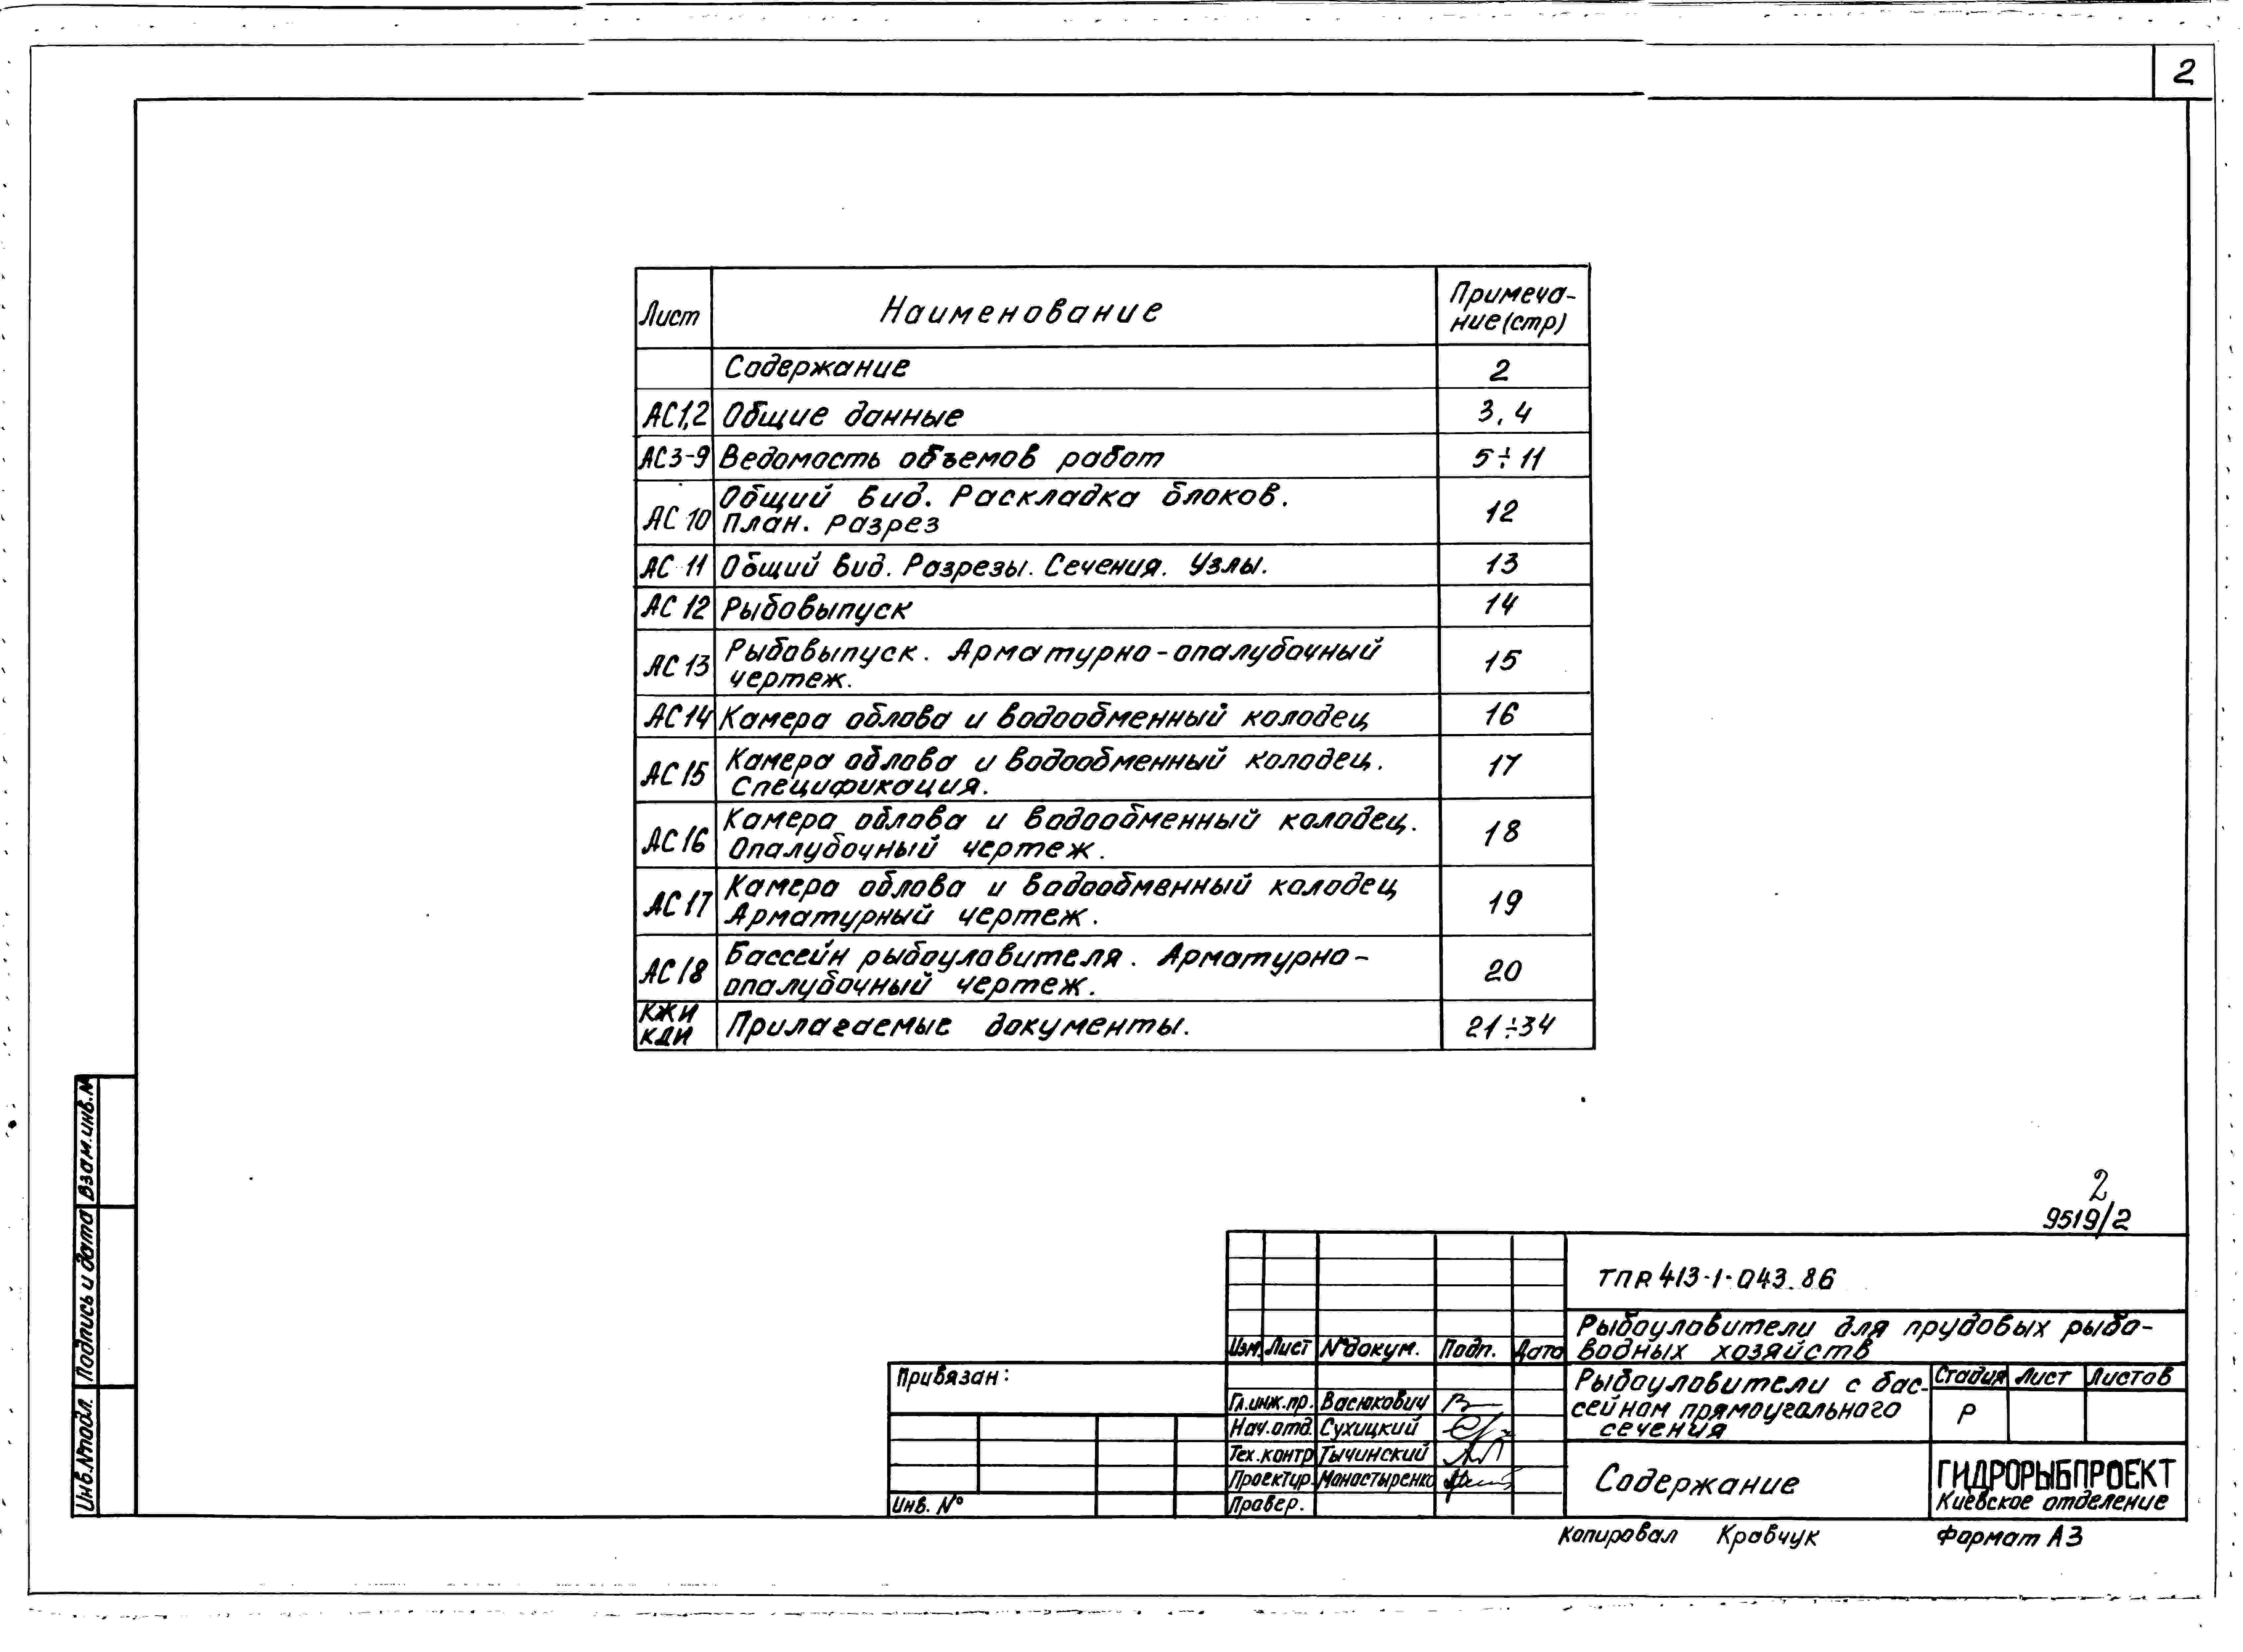 2
Лист Наименование Примеча-
ние(стр)
Содержание 2
АС1,2 Общие данные 3,4
АС3-9 Ведомость объемов работ 5÷11
Общий вид. Раскладка блоков.
АС 10 План. Разрез 12
АС 11 Общий вид. Разрезы. Сечения. Узлы. 13
АС 12 Рыбовыпуск 14
Рыбовыпуск. Арматурно-опалубочный
АС 13 чертеж. 15
АС 14 Камера облова и водообменный колодец 16
Камера облова и водообменный колодец.
АС 15 Спецификация. 17
Камера облова и водообменный колодец.
АС 16 Опалубочный чертеж. 18
Камера облова и водообменный колодец
АС 17 Арматурный чертеж. 19
Бассейн рыбоуловителя. Арматурно-
АС 18 опалубочный чертеж. 20
КЖИ
КДИ Прилагаемые документы. 21÷34
Взам.инв.№
Подпись и дата
Инв.№подл.
2
9519/2
ТПР 413-1-043.86
Рыбоуловители для прудовых рыбо-
водных хозяйств
Изм. Лист №докум. Подп. Дата
Привязан:
Инв. №
Гл.инж.пр. Васюкович
Нач.отд. Сухицкий
Тех.контр Тычинский
Проектир. Монастыренко
Провер.
Рыбоуловители с бас-
сейном прямоугольного
сечения
Стадия Лист Листов
Р
Содержание
ГИДРОРЫБПРОЕКТ
Киевское отделение
Копировал Кравчук Формат А3